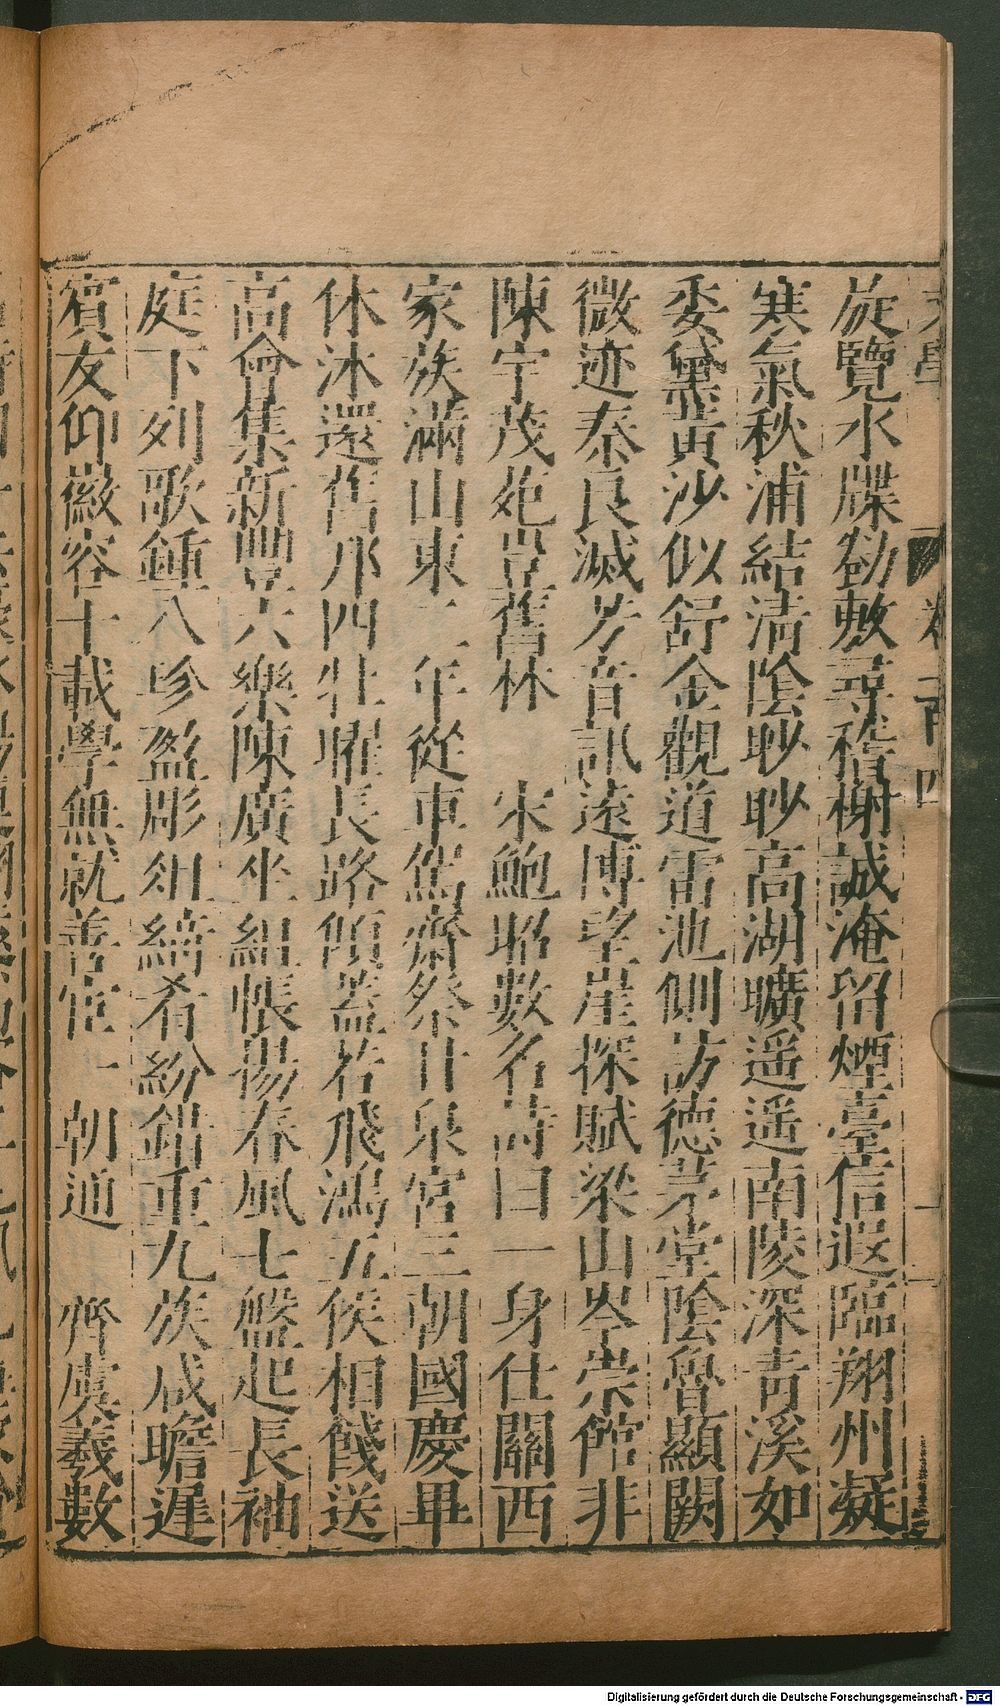 旋覽水牒勑敕尋稽榭誠淹留煙臺信遐臨翔州凝
寒氣秋浦結清陰眇眇高湖曠遥遥南陵深青溪如
委黛黄沙似舒金觀道雷池側訪德茅堂陰魯顯闕
微迹秦良滅芳音訊遠博望崖採賦梁山岑崇館非
陳宇茂苑豈舊林 宋鮑昭數名詩曰一身仕關西
家族滿山東二年從車駕齋祭甘泉宮三朝國慶畢
休沐還舊邦四牡曜長路傾蓋若飛鴻五侯相餞送
高會集新豐六樂陳廣坐組帳揚春風七盤起長袖
庭下列歌鍾八珍盈彫俎綺肴紛錯重九族咸瞻遲
賓友仰徽容十載學無就善宦一朝通 齊虞羲數
Digitalisierung gefördert durch die Deutsche Forschungsgemeinschaft - DFG